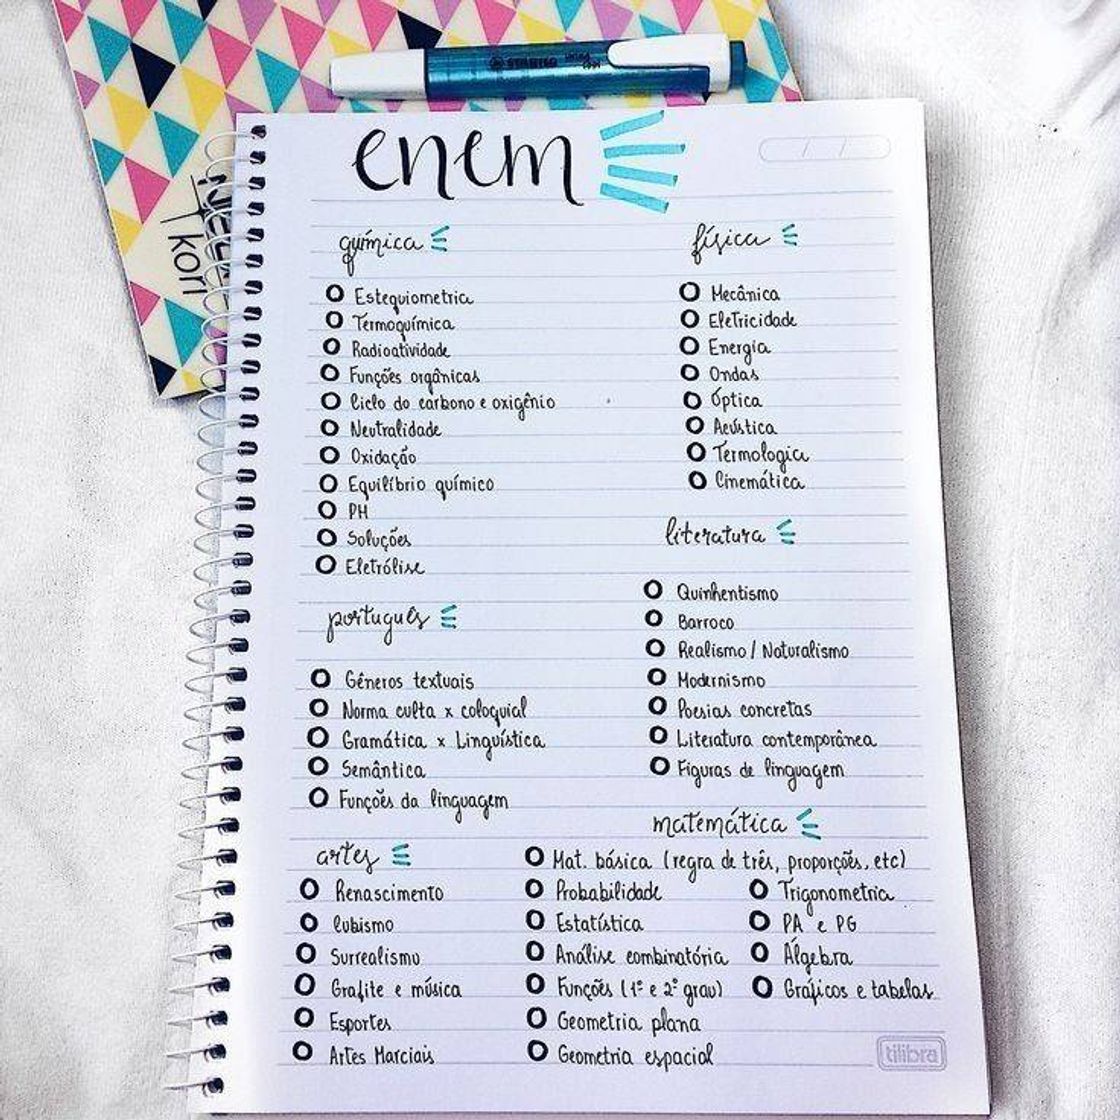 STABILO swing cool
kori
enem
química
Estequiometria
Termoquímica
Radioatividade
Funções orgânicas
Ciclo do carbono e oxigênio
Neutralidade
Oxidação
Equilíbrio químico
PH
Soluções
Eletrólise
física
Mecânica
Eletricidade
Energia
Ondas
Óptica
Acústica
Termologia
Cinemática
português
Gêneros textuais
Norma culta x coloquial
Gramática x Linguística
Semântica
Funções da linguagem
literatura
Quinhentismo
Barroco
Realismo / Naturalismo
Modernismo
Poesias concretas
Literatura contemporânea
Figuras de linguagem
artes
Renascimento
Cubismo
Surrealismo
Grafite e música
Esportes
Artes Marciais
matemática
Mat. básica (regra de três, proporções, etc)
Probabilidade
Estatística
Análise combinatória
Funções (1º e 2º grau)
Geometria plana
Geometria espacial
Trigonometria
PA e PG
Álgebra
Gráficos e tabelas
tilibra